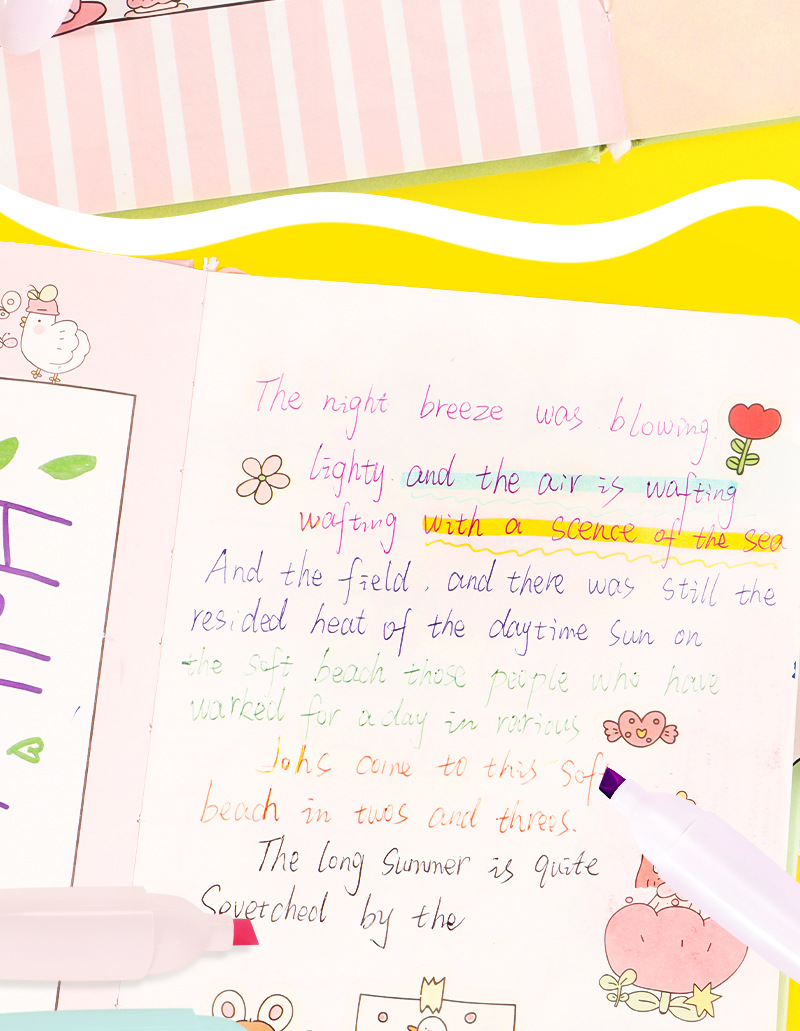 The night breeze was blowing
lighty. and the air is wafting
wafting with a scence of the sea
And the field, and there was still the
resided heat of the daytime sun on
the soft beach those people who have
warked for a day in rarious
Johs come to this soft
beach in twos and threes.
The long summer is quite
Sovetched by the